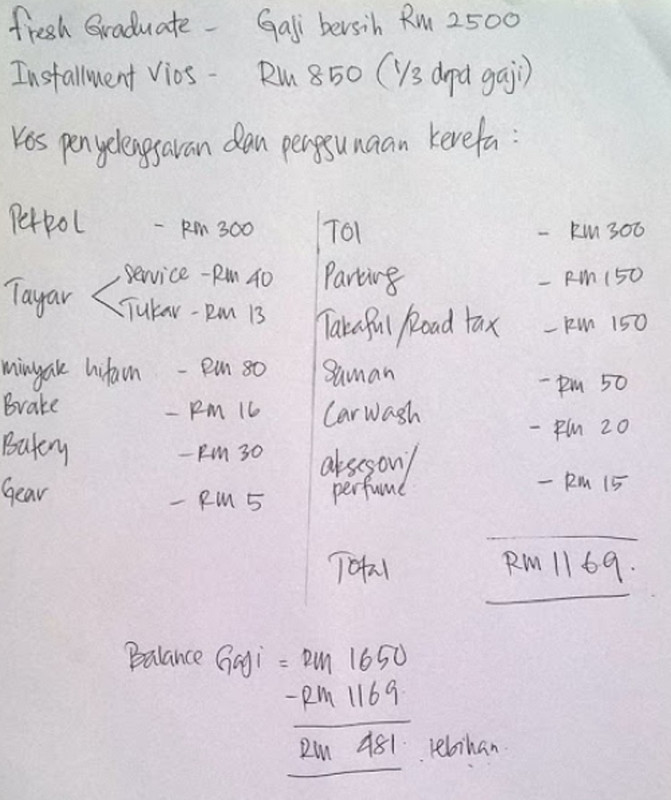 fresh Graduate - Gaji bersih Rm 2500
Installment Vios - RM 850 (1/3 drpd gaji)
Kos penyelenggaran dan penggunaan kereta :
Petrol - RM 300
Tayar < service - RM 40
Tukar - RM 13
minyak hitam - RM 80
Brake - RM 16
Batery - RM 30
Gear - RM 5
TOl - RM 300
Parking - RM 150
Takaful/Road tax - RM 150
Saman - RM 50
Car wash - RM 20
aksesori/
perfume - RM 15
Total RM 1169.
Balance Gaji = RM 1650
- RM 1169
RM 481. lebihan.